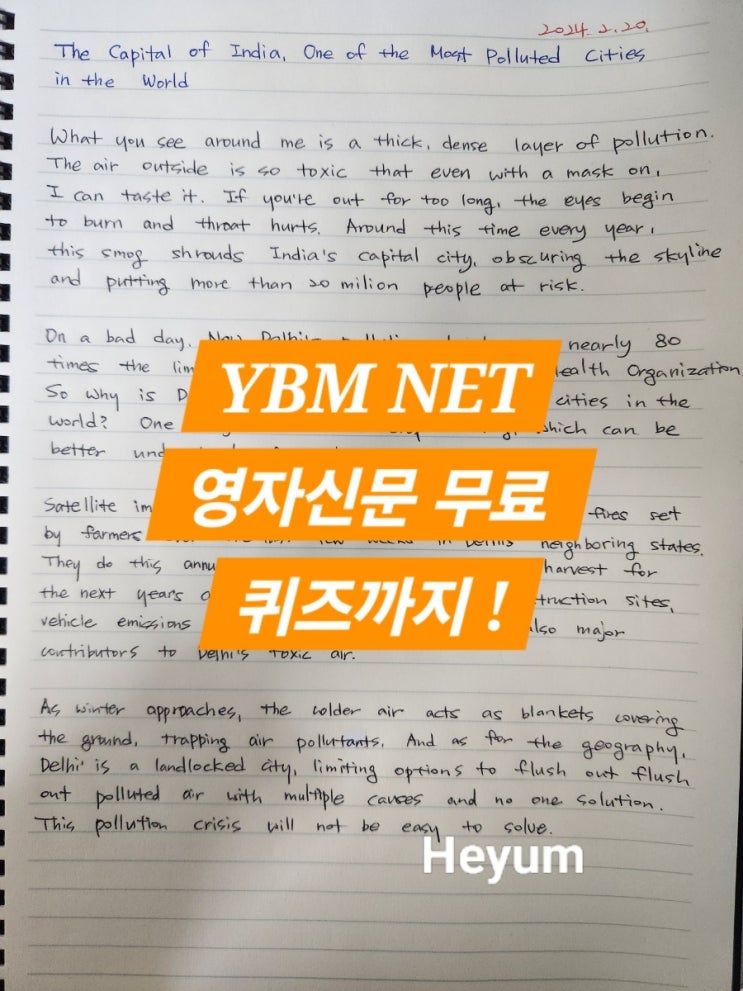 2024. 2. 20.
The Capital of India, One of the Most Polluted Cities
in the World
What you see around me is a thick, dense layer of pollution.
The air outside is so toxic that even with a mask on,
I can taste it. If you're out for too long, the eyes begin
to burn and throat hurts. Around this time every year,
this smog shrouds India's capital city, obscuring the skyline
and putting more than 20 milion people at risk.
On a bad day, nearly 80
times the ealth Organization
So why is D cities in the
world? One which can be
better
YBM NET
영자신문 무료
퀴즈까지 !
Satellite fires set
by farmers neighboring states.
They do this harvest for
the next years truction sites,
vehicle emissions lso major
contributors to Delhi's toxic air.
As winter approaches, the colder air acts as blankets covering
the ground, trapping air pollutants. And as for the geography,
Delhi is a landlocked city, limiting options to flush out flush
out polluted air with multiple causes and no one solution.
This pollution crisis will not be easy to solve.
Heyum